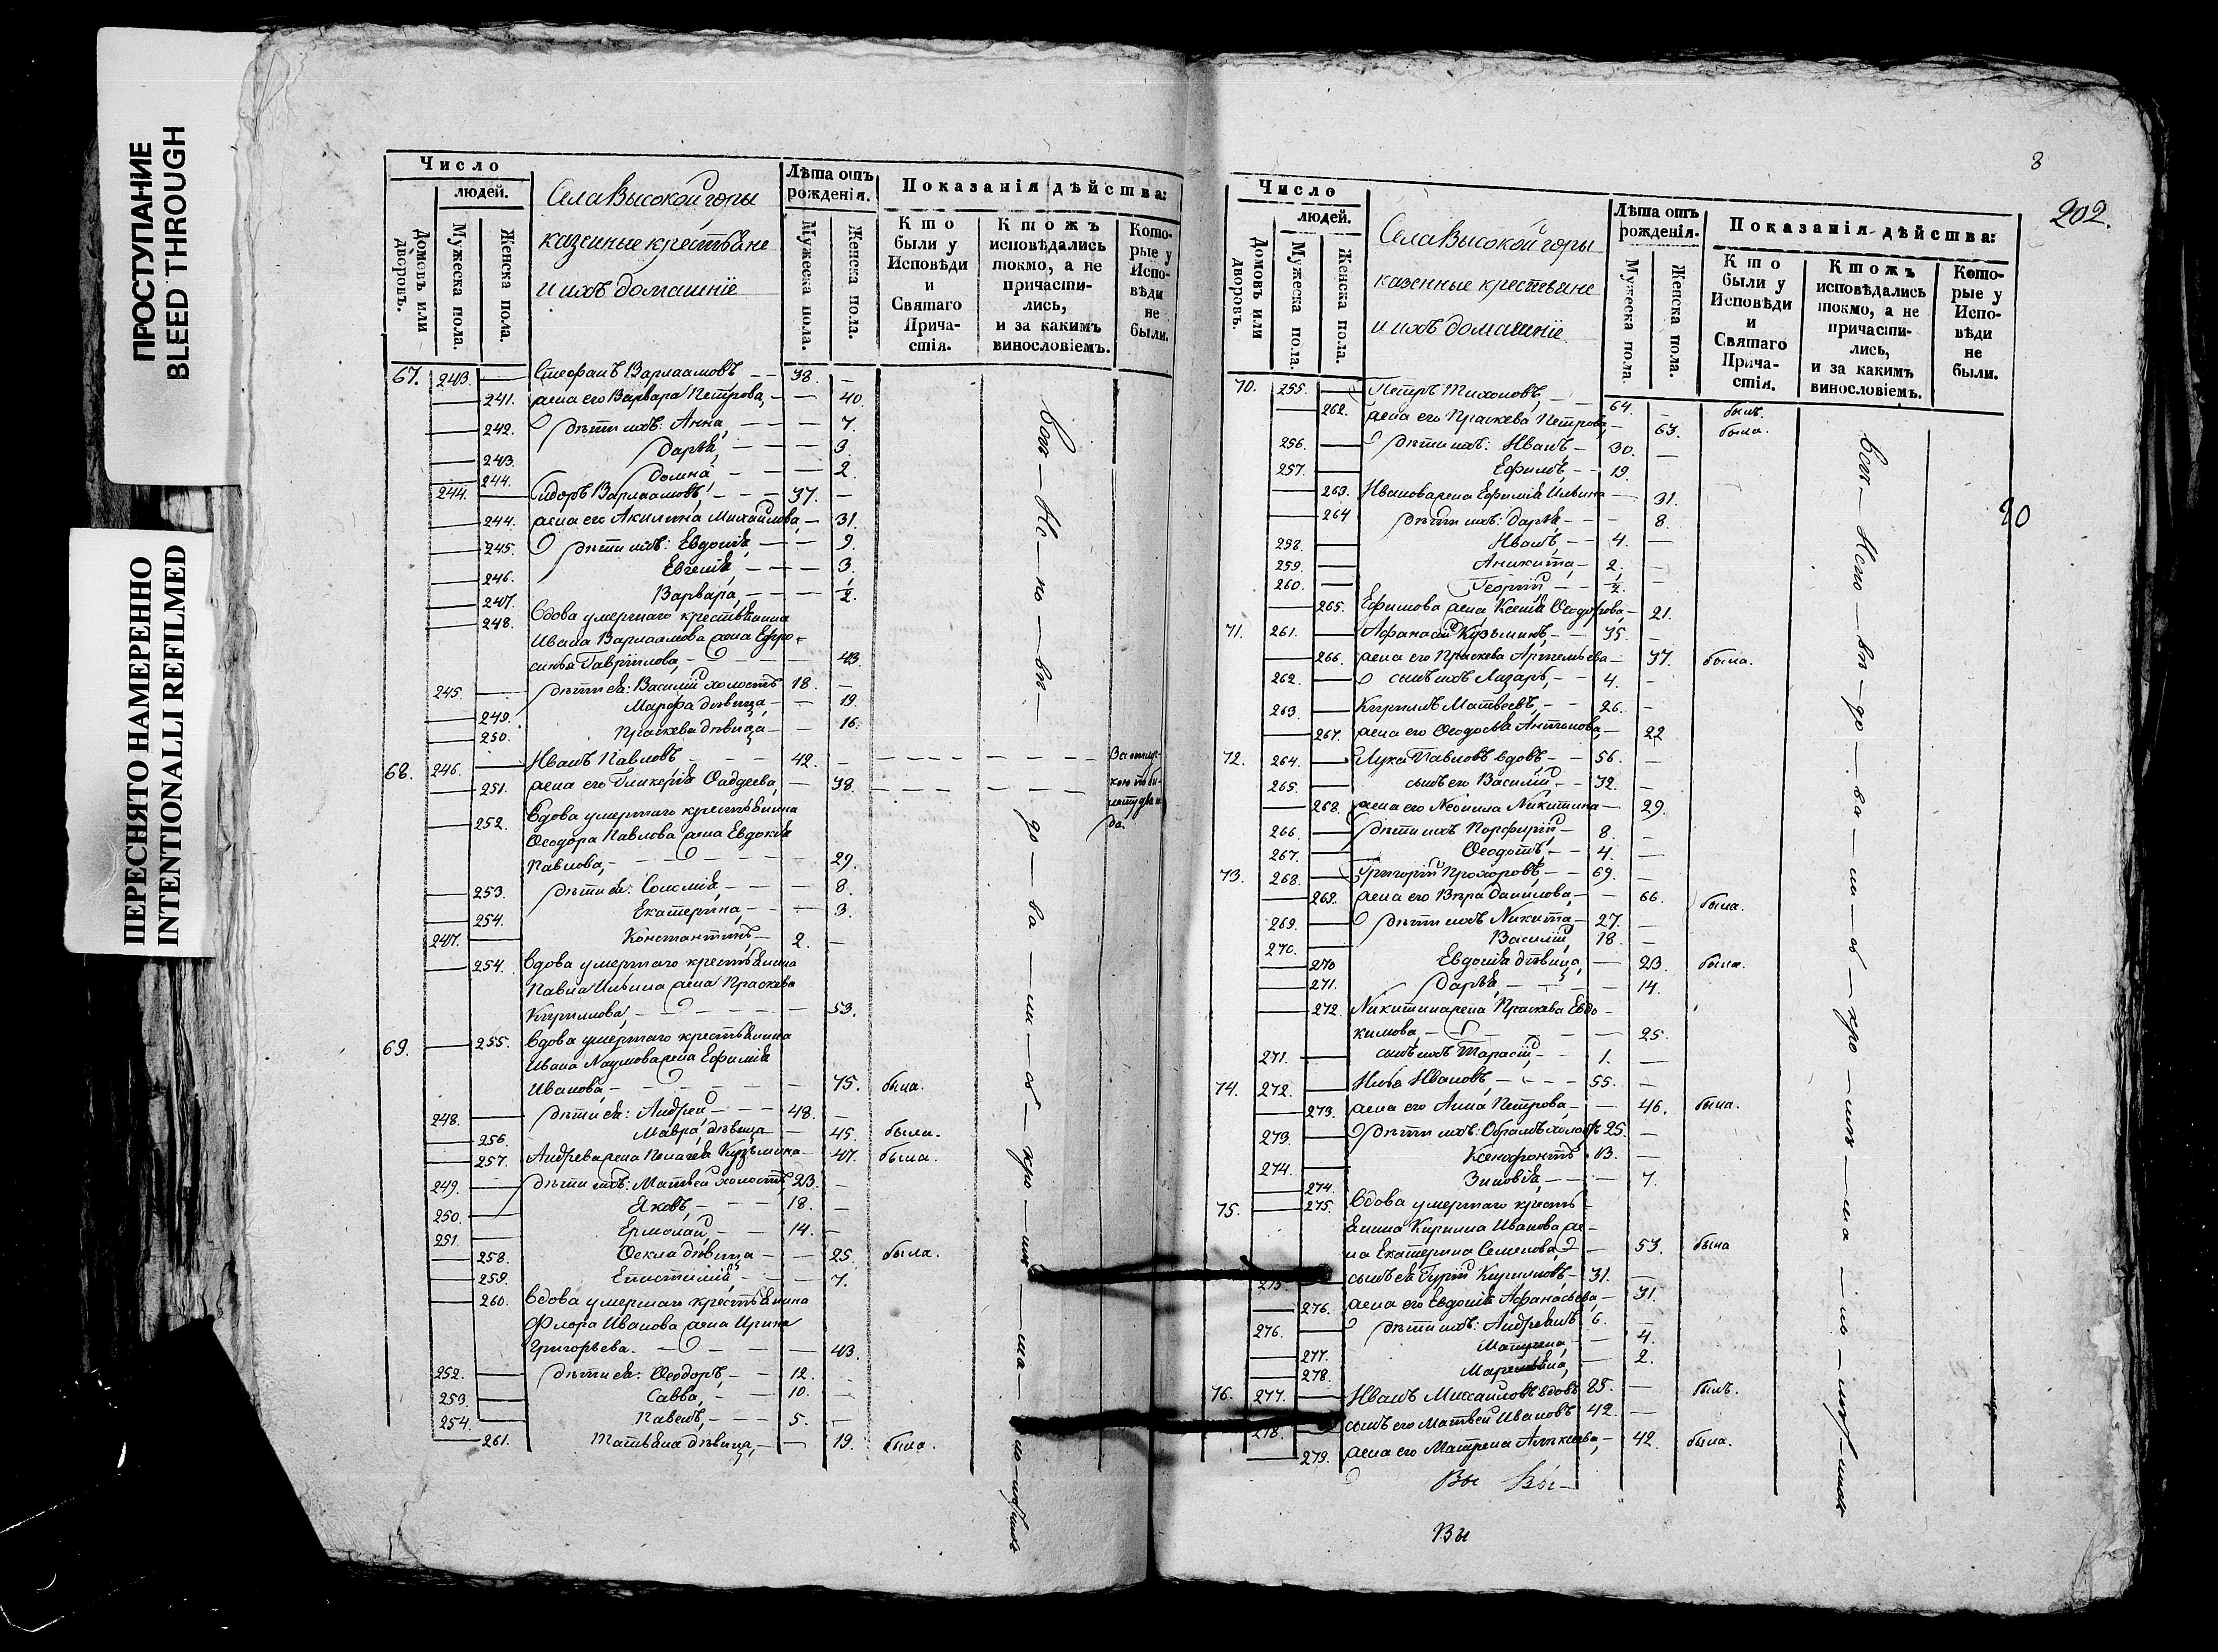 ПРОСТУПАНИЕ
BLEED THROUGH
ПЕРЕСНЯТО НАМЕРЕННО
INTENTIONALLI REFILMED
Число
людей.
Домовъ или дворовъ.
Мужеска пола.
Женска пола.
Села Высокой горы
казенные крестьяне
и ихъ домашніе
Лѣта отъ рожденія.
Мужеска пола.
Женска пола.
Показанія дѣйства:
Кто были у Исповѣди и Святаго Прича-стія.
Ктожъ исповѣдались токмо, а не причасти-лись, и за какимъ винословіемъ.
Кото-рые у Испо-вѣди не были.
67. 243. Стефанъ Варлаамовъ 38.
241. жена его Варвара Петрова, 40.
242. дѣти ихъ: Анна, 7.
243. Дарья, 3.
244. Домна, 2.
244. Сидоръ Варлаамовъ, 37.
244. жена его Акилина Михайлова, 31.
245. дѣти ихъ: Евдокія, 9.
246. Евгенія, 3.
247. Варвара,
248. Вдова умершаго крестьянина
Ивана Варлаамова жена Ефро-
синья Гавріилова, 43.
245. дѣти ея: Василій холостъ 18.
249. Марфа дѣвица, 19.
250. Праскева дѣвица 16.
68. 246. Иванъ Павловъ 42.
251. жена его Гликерія Фаддеева, 38.
252. Вдова умершаго крестьянина
Ѳеодора Павлова жена Евдокія
Павлова, 29.
253. дѣти ея: Соломія, 8.
254. Екатерина, 3.
247. Константинъ 2.
254. Вдова умершаго крестьянина
Павла Ильина жена Праскева
Кирилова, 53.
69. 255. Вдова умершаго крестьянина
Ивана Наумова жена Ефимія
Иванова, 75. была.
248. дѣти ея: Андрей, 48.
256. Мавра дѣвица 45. была.
257. Андреева жена Пелагея Кузьмина 47. была.
249. дѣти ихъ: Матвей холостъ, 23.
250. Яковъ, 18.
251. Ермолай, 14.
258. Ѳекла дѣвица 25. была.
259. Епистимія, 7.
260. Вдова умершаго крестьянина
Флора Иванова жена Ирина
Григорьева. 43.
252. дѣти ея: Ѳеодоръ, 12.
253. Савва, 10.
254. Павелъ, 5.
261. Татьяна дѣвица, 19. была.
8
202.
Число
людей.
Домовъ или дворовъ.
Мужеска пола.
Женска пола.
Села Высокой горы
казенные крестьяне
и ихъ домашніе.
Лѣта отъ рожденія.
Мужеска пола.
Женска пола.
Показанія дѣйства:
Кто были у Исповѣди и Святаго Прича-стія.
Ктожъ исповѣдались токмо, а не причасти-лись, и за какимъ винословіемъ.
Кото-рые у Испо-вѣди не были.
70. 255. Петръ Тихоновъ, 64. былъ.
262. жена его Праскева Петрова, 63. была.
256. дѣти ихъ: Иванъ 30.
257. Ефимъ 19.
263. Иванова жена Ефимія Ильина 31.
264 дѣти ихъ: Дарья 8.
258. Иванъ, 4.
259. Аникита, 2.
260. Георгій
265. Ефимова жена Ксенія Ѳеодорова, 21.
71. 261. Афанасій Кузьминъ, 35.
266. жена его Праскева Артемьева 37. была.
262. сынъ ихъ Лазарь, 4.
263. Кирилъ Матвеевъ, 26.
267. жена его Ѳеодосья Антонова, 22
72. 264. Лука Павловъ вдовъ 56.
265. сынъ его Василій 32.
268. жена его Неонила Никитина 29.
266. дѣти ихъ Порфирій 8.
267. Ѳеодотъ, 4.
73. 268. Григорій Прохоровъ 69.
269. жена его Вѣра Данилова, 66. была.
269. дѣти ихъ Никита 27.
270. Василій, 18.
270 Евдокія дѣвица, 23. была.
271. Дарья, 14.
272. Никитина жена Праскева Евдо-
кимова, 25.
271. сынъ ихъ Тарасій, 1.
74. 272. Иивановъ, 55.
273. жена его Анна Петрова, 46. была.
273. дѣти ихъ: 25.
274. Ксенофонтъ 13.
274. Зиновія, 7.
75. 275. Вдова умершаго кресть-
янина Кирила Иванова же-
на Екатерина Семенова, 53. была
275 сынъ ея Гурій Кириловъ, 31.
276. жена его Евдокія Афанасьева, 31.
276. дѣти ихъ: Андреянъ 6.
277. Матрена, 4.
278. 2.
76. 277. Иванъ Михайловъ вдовъ 85. былъ.
278. сынъ его Матвей Ивановъ 42.
279. жена его Матрена Алексеева, 42. была.
Вы Вы
Вы